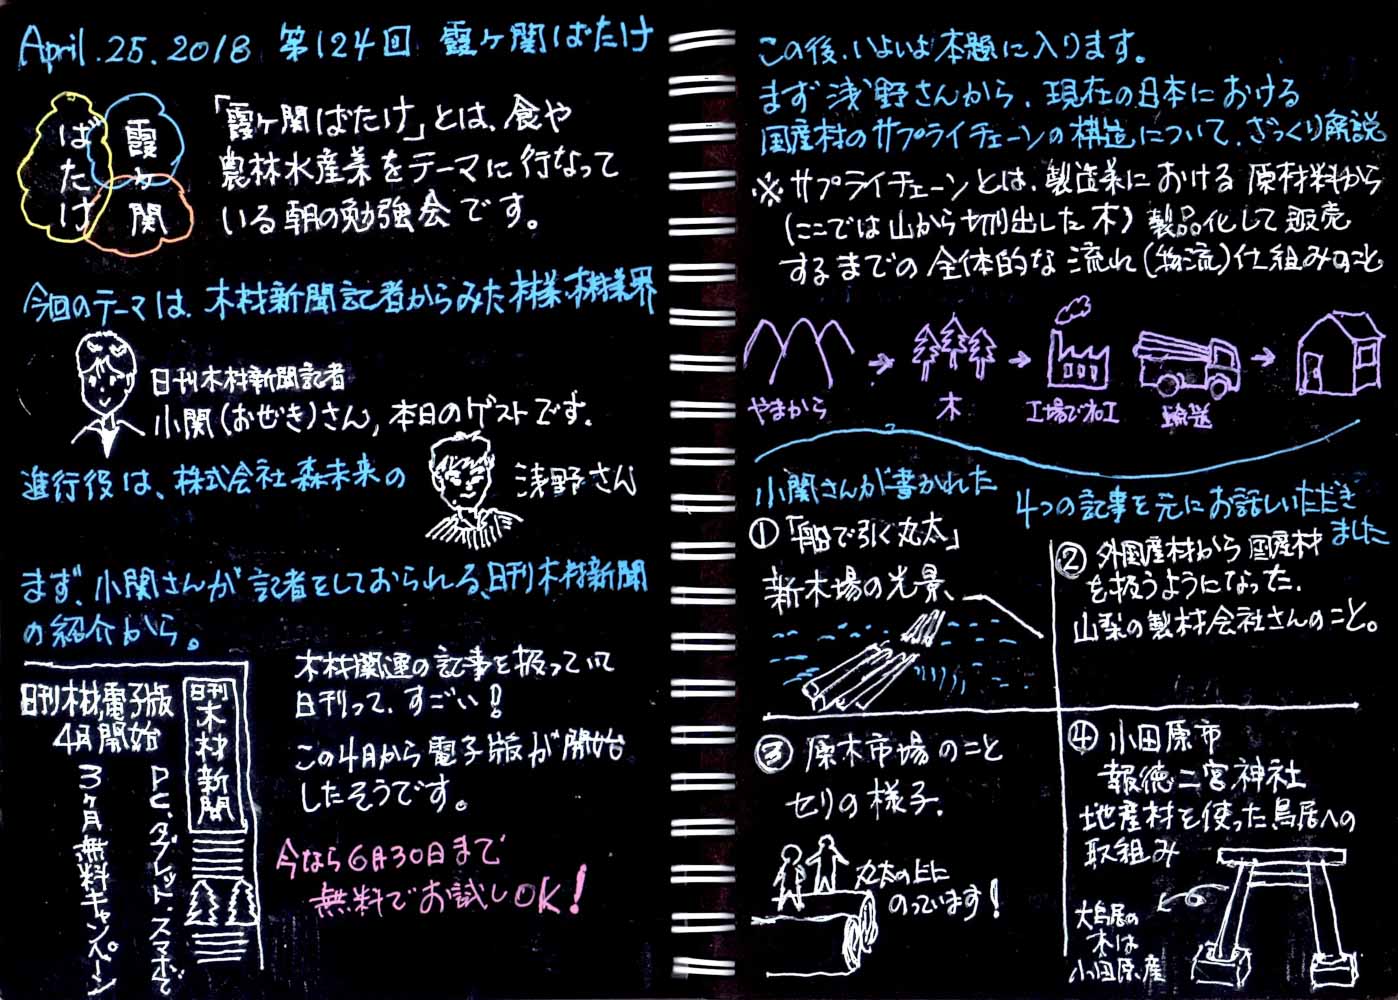 April.25.2018 第124回 霞ヶ関ばたけ
霞ヶ関
ばたけ
「霞ヶ関ばたけ」とは、食や
農林水産業をテーマに行なって
いる朝の勉強会です。
今回のテーマは、木材新聞記者からみた林業・木材業界
日刊木材新聞記者
小関(おぜき)さん,本日のゲストです.
進行役は、株式会社森未来の
浅野さん
まず、小関さんが記者をしておられる、日刊木材新聞
の紹介から。
日刊木材電子版
4月開始
PC、タブレット、スマホで
3ヶ月無料キャンペーン
日刊木材新聞
木材関連の記事を扱っていて
日刊って、すごい!
この4月から電子版が開始
したそうです。
今なら6月30日まで
無料でお試しOK!
この後、いよいよ本題に入ります。
まず浅野さんから、現在の日本における
国産材のサプライチェーンの構造について、ざっくり解説
※サプライチェーンとは、製造業における原材料から
(ここでは山から切り出した木)製品化して販売
するまでの全体的な流れ(物流)仕組みのこと
やまから
木
工場で加工
輸送
小関さんが書かれた
4つの記事を元にお話しいただき
ました
①「船で引く丸太」
新木場の光景、
②外国産材から国産材
を扱うようになった、
山梨の製材会社さんのこと。
③原木市場のこと
セリの様子、
丸太の上に
のっています!
④小田原市
報徳二宮神社
地産材を使った鳥居への
取組み
大鳥居の
木は
小田原産